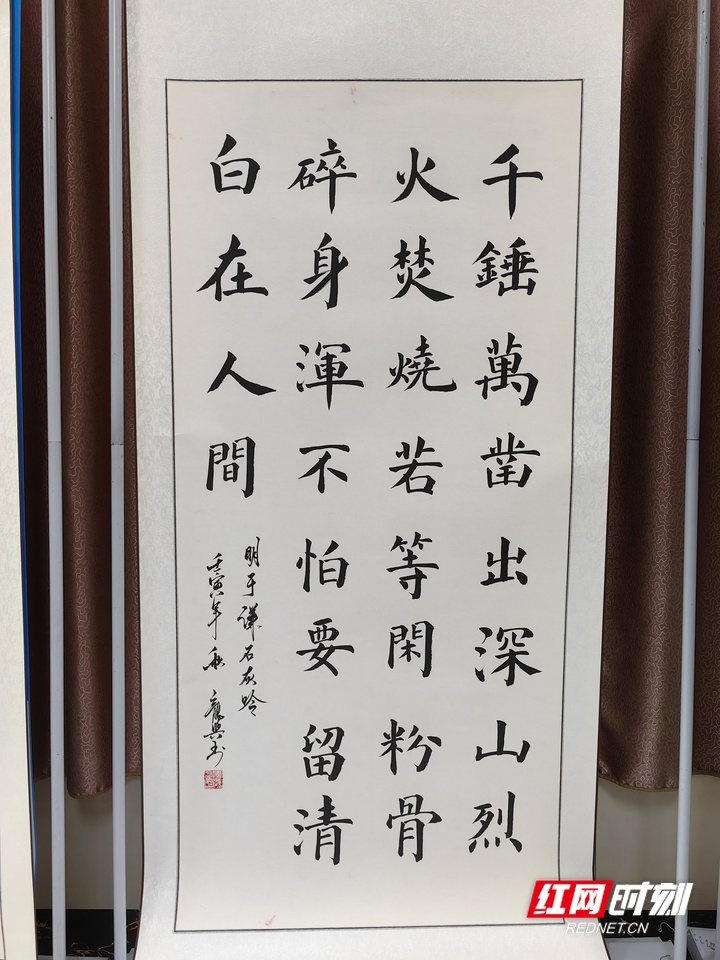 千錘萬凿出深山烈
火焚燒若等閑粉骨
碎身渾不怕要留清
白在人間
明于謙石灰吟
壬寅年秋
红网时刻
REDNET.CN